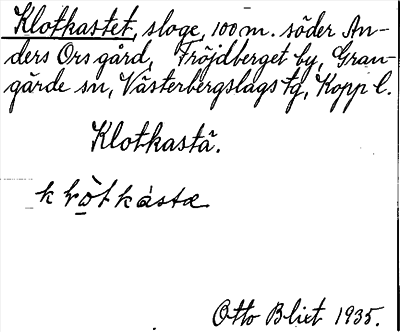 Klotkastet, sloge, 100 m. söder An-
ders Ors gård, Fröjdberget by, Gran-
gärde sn, Västerbergslags tg, Kopp l.
Klotkastä.
Otto Blixt 1935.